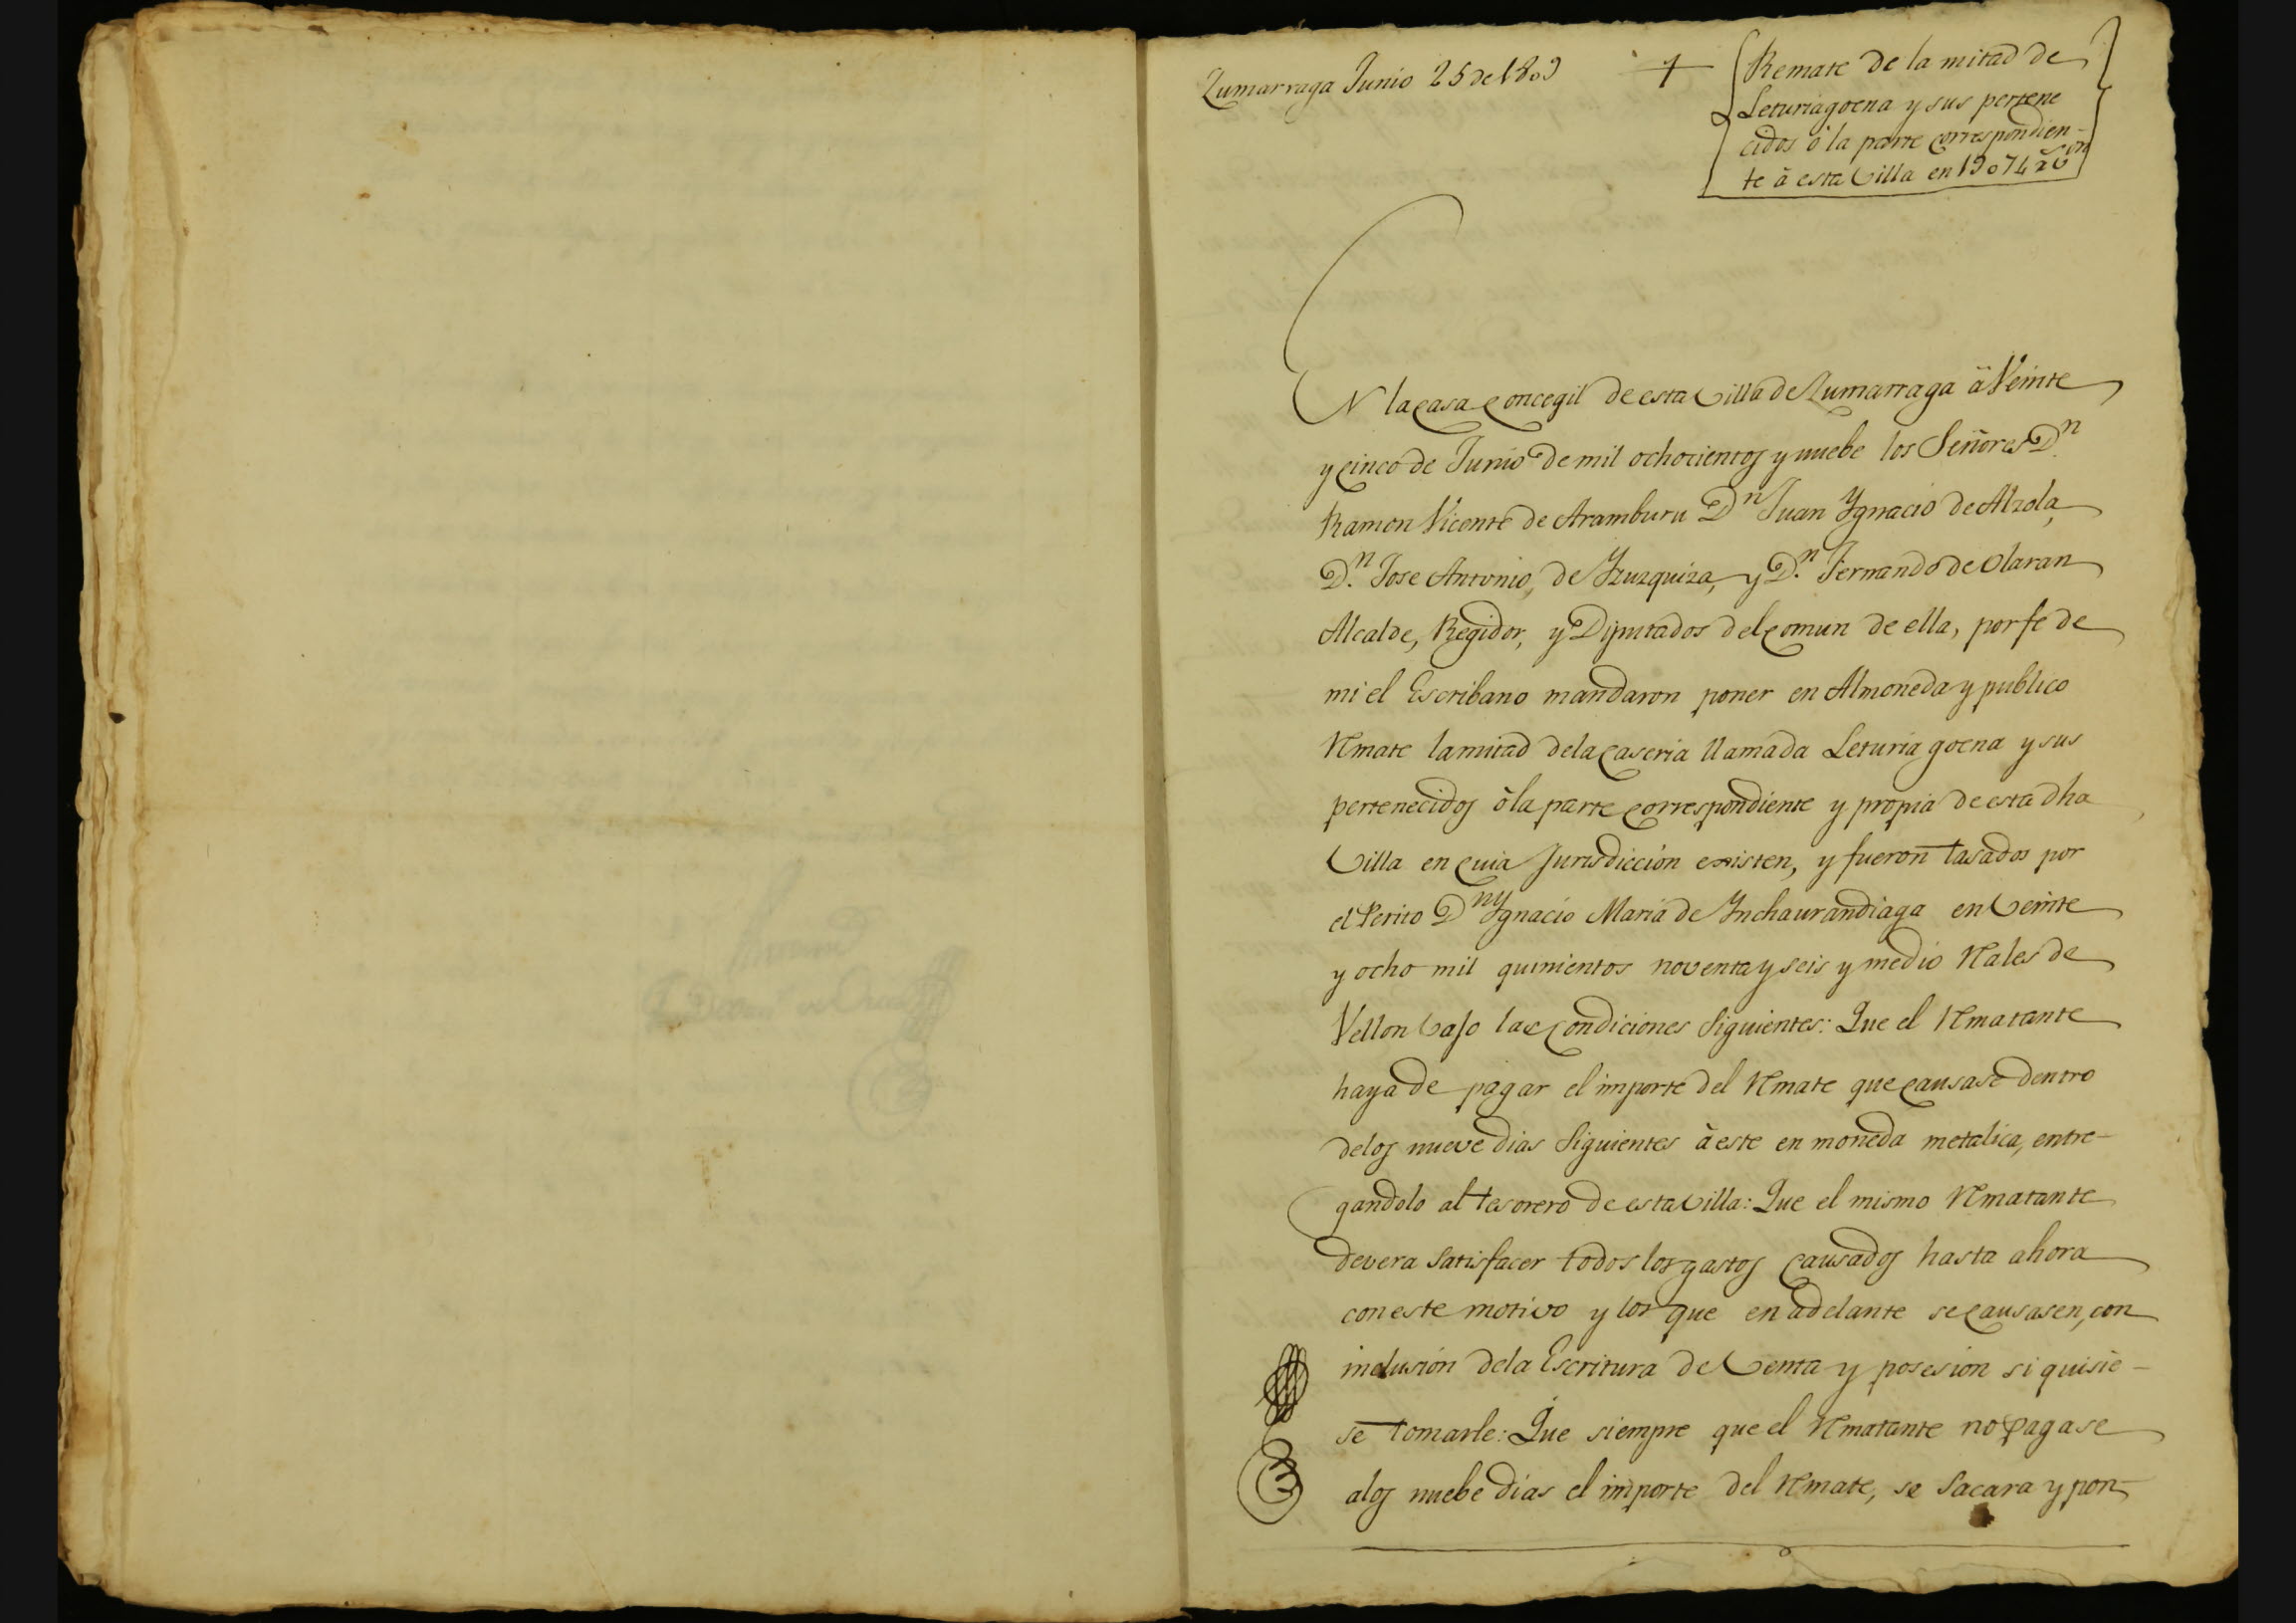 Zumarraga Junio 25 de 1809
+
Remate de la mitad de
Leturiagoena y sus pertene
cidos ò la parte correspondien-
te à esta Villa en
N la casa Concegil de esta Villa de Zumarraga à Veinte
y cinco de Junio de mil ochocientos y nuebe los Señores Dn
Ramon Vicente de Aramburu Dn Juan Ygnacio de Alzola,
Dn. Jose Antonio, de Yzuzquiza, y Dn. Fernando de Olaran
Alcalde, Regidor, y Diputados del comun de ella, por fe de
mi el Escribano mandaron poner en Almoneda y publico
Rmate la mitad de la Caseria llamada Leturiagoena y sus
pertenecidos ò la parte correspondiente y propia de esta dha
Villa en cuia Jurisdicción existen, y fueron tasados por
el Perito Dn Ygnacio Maria de Ynchaurandiaga en Veinte
y ocho mil quinientos noventa y seis y medio Rales de
Vellon bajo las condiciones siguientes: Que el Rmatante
haya de pagar el importe del Rmate que causase dentro
de los nueve dias siguientes à este en moneda metalica, entre-
gandolo al tesorero de esta Villa: Que el mismo Rmatante
devera satisfacer todos los gastos causados hasta ahora
con este motivo y los que en adelante se causasen, con
inclusión de la Escritura de Venta y posesion si quisie-
se tomarle: Que siempre que el Rmatante no pagase
a los nuebe dias el importe del Rmate, se sacara y pon-